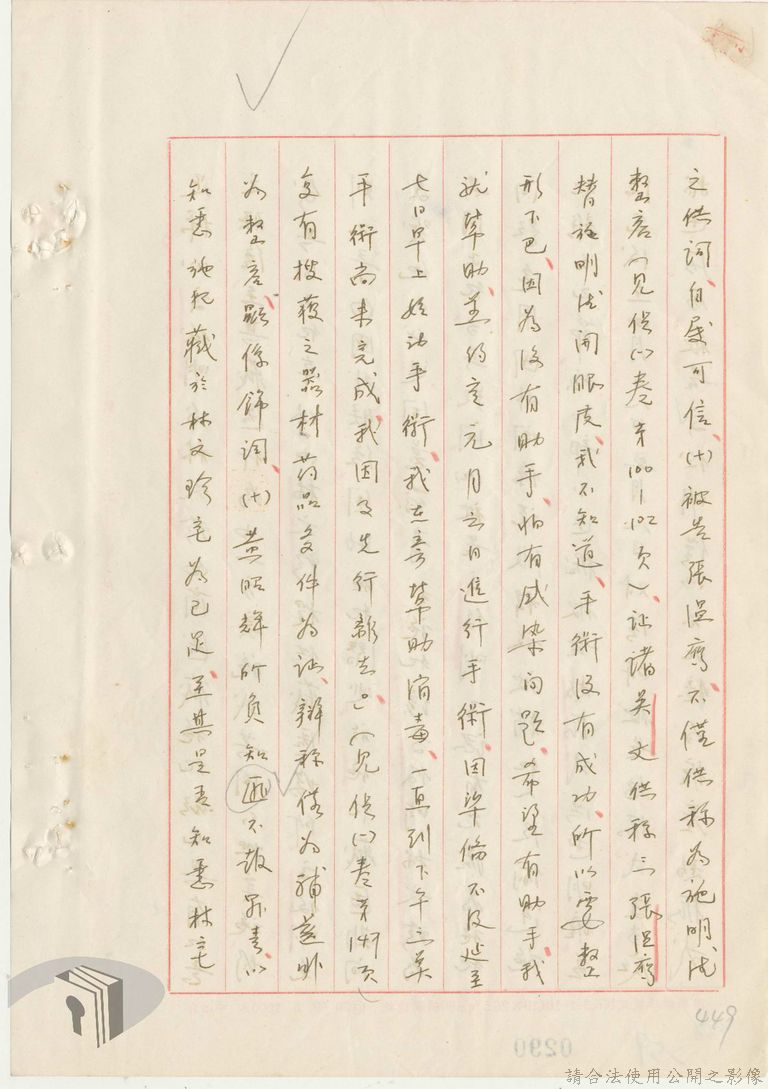 之供詞、自屬可信、(十)被告張溫鷹、不僅供稱為施明德
整容(見偵(1)卷第100-102頁)、証諸吳文供稱:「張溫鷹
替施明德開眼皮、我不知道、手術沒有成功、所以要整
形下巴、因為沒有助手、怕有感染問題、希望有助手、我
就幫助、並約定元月六日進行手術、因準備不及延至
七日早上始動手術、我在旁幫助消毒、一直到下午二英
手術尚未完成、我因友先行離去。」(見偵(一)卷第147頁)
復有搜獲之器材葯品多件為証、辯稱係為補送外
為整容、顯係飾詞、(十)黃昭輝所負知匪不報罪責、以
知悉施犯藏於林文珍宅為已足、至其是否知悉林宅
449
0290
請合法使用公開之影像